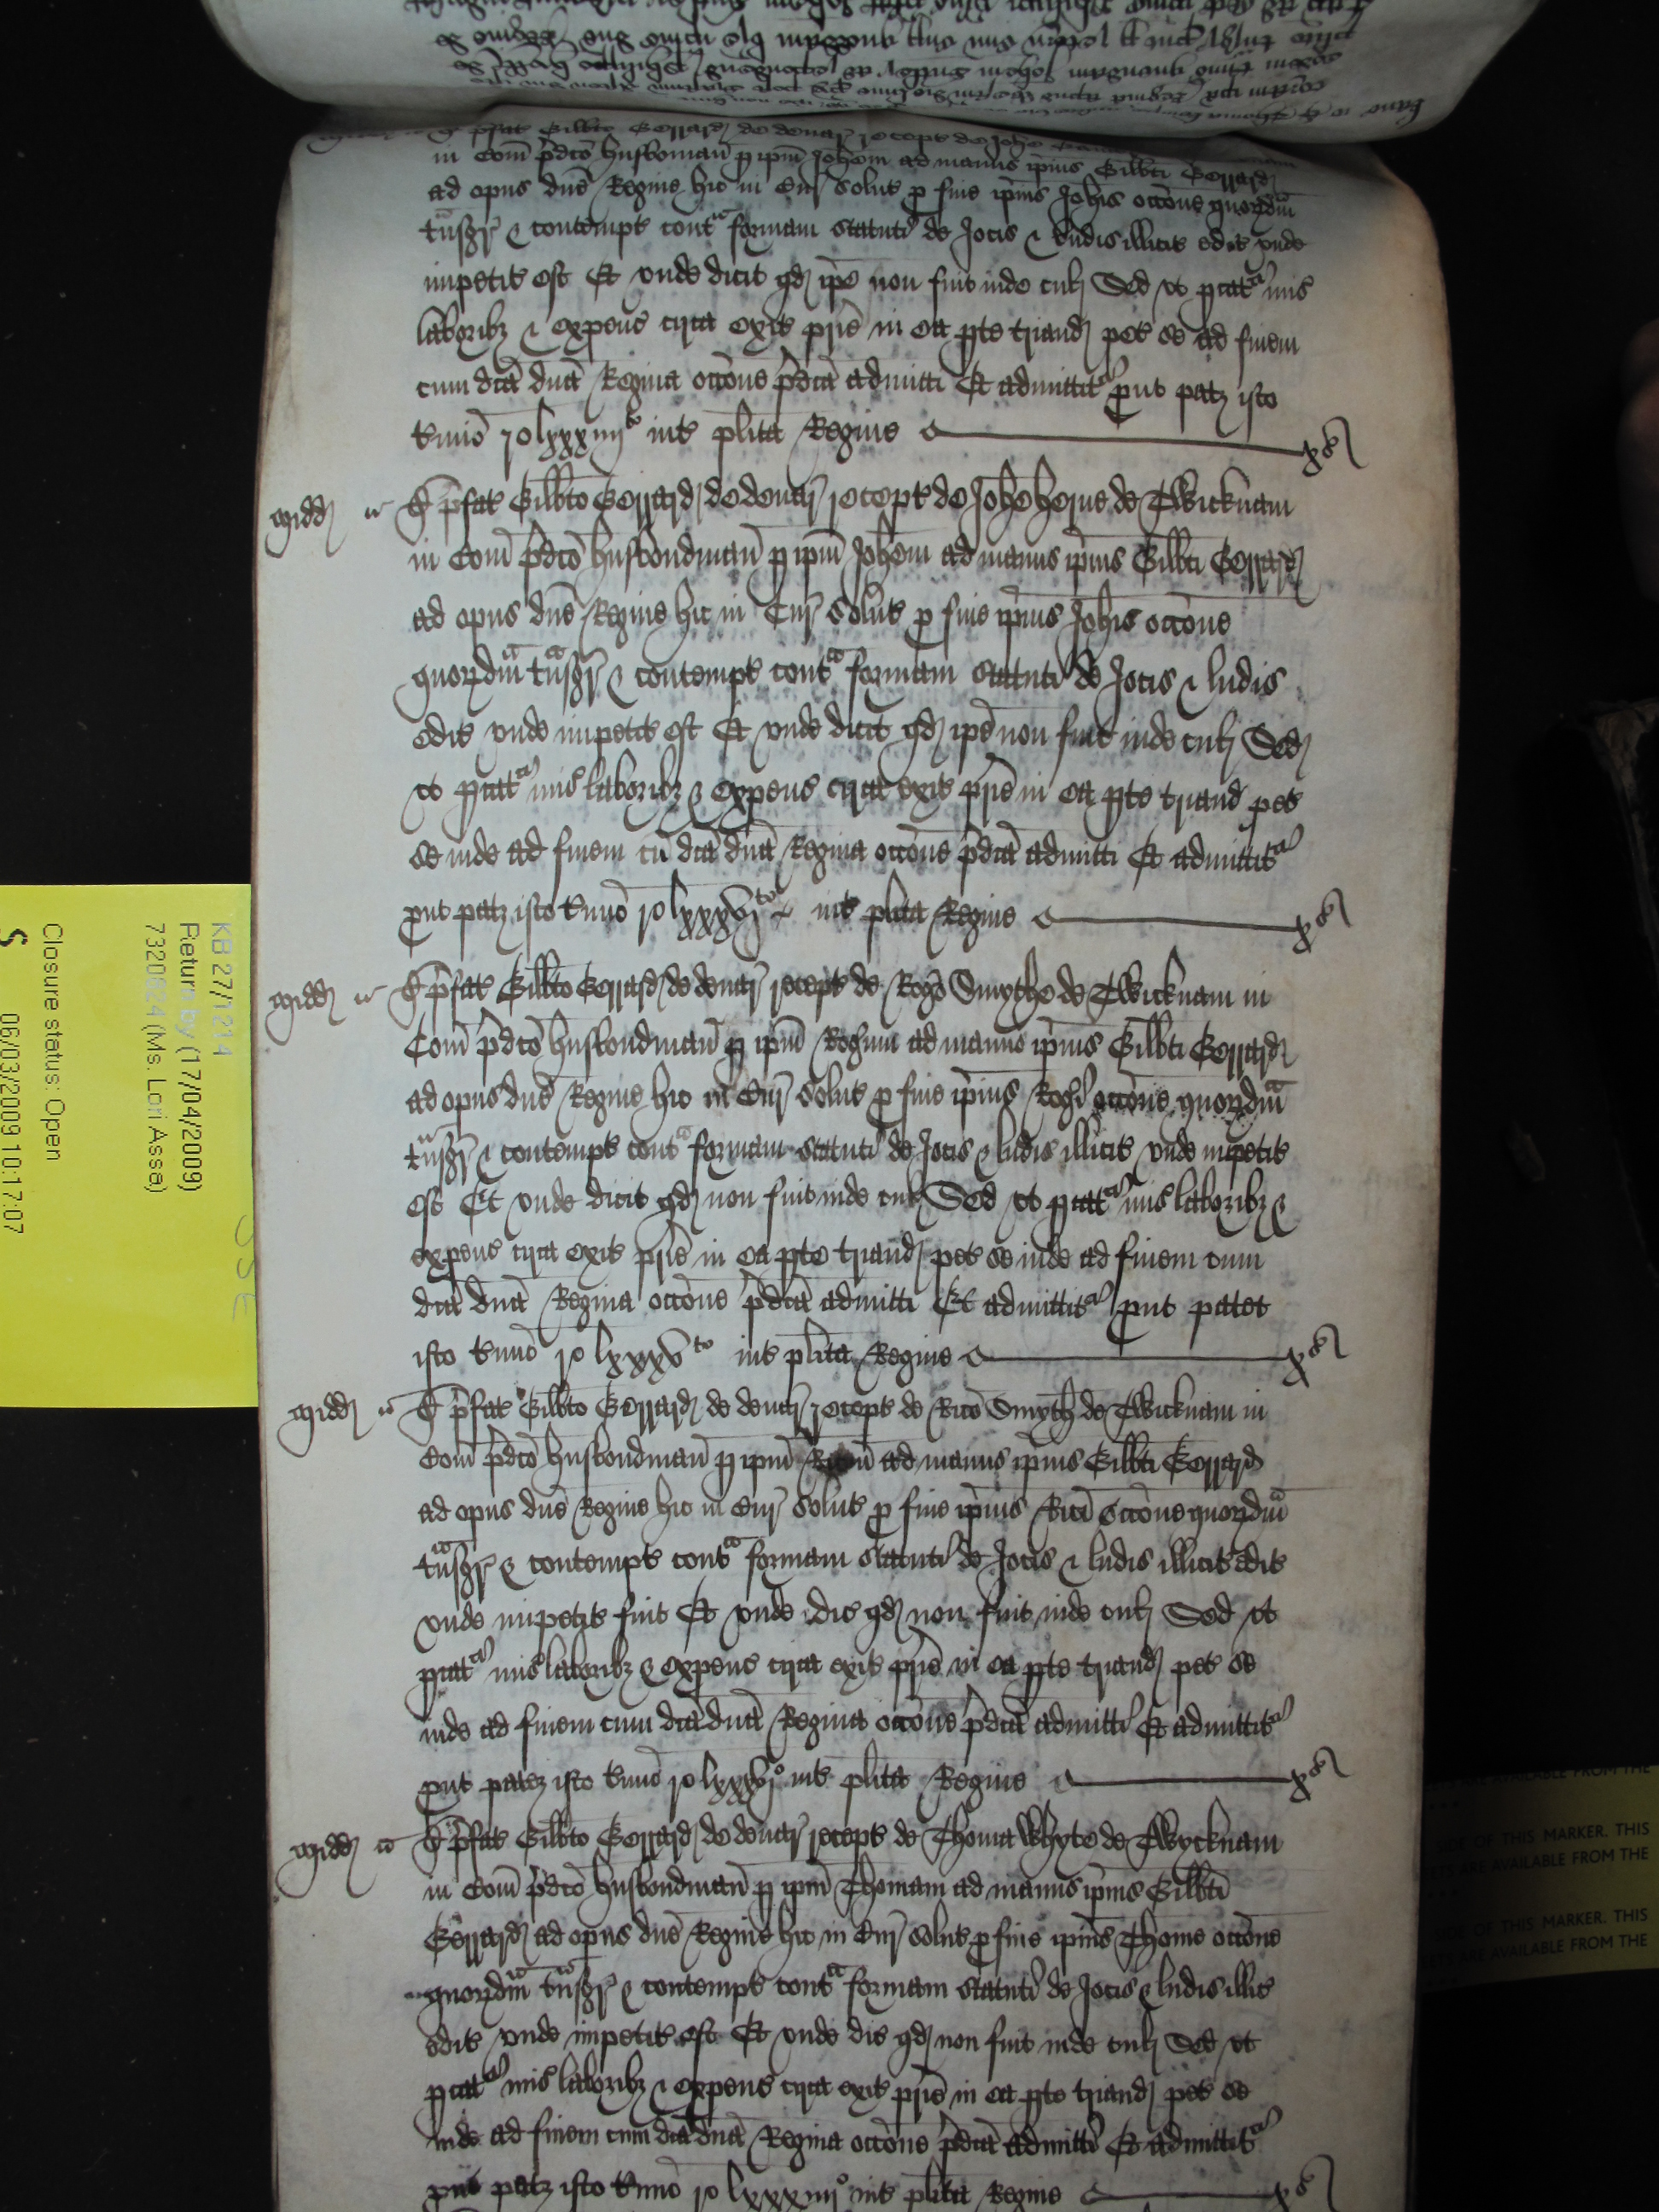 p̱fat Gilbto Gerrard de denar recept de Johe
in Com p̄dco husbondman̄ p ip̄m Johem ad manus ip̄ius Gilbti Gerrard
ad opus dn̄e Regine hic in Cur̄ solut p fine ip̄ius Johis occōne quorᵭm
tn̄sgr & contempt contᵃ formam statuti de Jocis & ludis illicit edit vnde
impetit est Et vnde dicit qd ip̄e non fuit inde culp Sed vt pcatʳ mis
laboribȝ & expens circa exit pr̄ie in ea pte triand pet se ad finem
cum dc̄a dn̄a Regina occōne p̄dc̄a admitti Et admittitʳ put patȝ isto
t̄mino ro lxxxiiijᵗᵒ int plita Regine xˢ
Midd ss D p̄fat Gilbto Gerrard de denar̄ recept de Johe herne de Twicknam
in Com̄ p̄dco husbondman̄ p ip̄m Johem ad manus ip̄ius Gilbti Gerrard
ad opus dn̄e Regine hic in Cur̄ solut p fine ip̄ius Johis occōne
quorᵭm tn̄sgr & contempt contᵃ formam statuti de Jocis & ludis
edit vnde impetit est Et vnde dicit qd ip̄e non fuit inde culp Sed
vt pcatʳ mis laboribȝ & expens circa exit pr̄ie in ea pte triand pet
se inde ad finem cū dc̄a dn̄a Regina occōne p̄dc̄a admitti Et admittitʳ
put patȝ isto t̄mino ro lxxxvjᵗᵒ int plita Regine xˢ
Midd ss D p̄fat Gilbto Gerrard de denar̄ recept de Rogo Smythe de Twicknam in
Com̄ p̄dco husbondman̄ p ip̄m Rogum ad manus ip̄ius Gilbti Gerrard
ad opus dn̄e Regine hic in Cur̄ solut p fine ip̄ius Rogi occōne quorᵭm
tn̄sgr & contempt contᵃ formam statuti de Jocis & ludis illicit vnde impetit
est Et vnde dicit qd non fuit inde culp Sed vt pcatʳ mis laboribȝ &
expens circa exit pr̄ie in ea pte triand pet se inde ad finem cum
dc̄a dn̄a Regina occōne p̄dc̄a admitti Et admittitʳ put patet
isto t̄mino ro lxxxvᵗᵒ int plita Regine xˢ
Midd ss D p̄fat Gilbto Gerrard de denar̄ recept de Rico Smyth de Twicknam in
Com̄ p̄dco husbondman̄ p ip̄m Ricm̄ ad manus ip̄ius Gilbti Gerrard
ad opus dn̄e Regine hic in Cur̄ solut p fine ip̄ius Rici occōne quorᵭm
tn̄sgr & contempt contᵃ formam statuti de Jocis & ludis illicit edit
vnde impetit fuit Et vnde dic qd non fuit inde culp Sed vt
pcatʳ mis laboribȝ & expens circa exit pr̄ie in ea pte triand pet se
inde ad finem cum dc̄a dn̄a Regina occōne p̄dc̄a admitti Et admittitʳ
put patȝ isto t̄mino ro lxxxvjᵒ int plita Regine xˢ
Midd ss D p̄fat Gilbto Gerrard de denar̄ recept de Thoma Whyte de Twycknam
in Com̄ p̄dco husbondman̄ p ip̄m Thomam ad manus ip̄ius Gilbti
Gerrard ad opus dn̄e Regine hic in Cur̄ solut p fine ip̄ius Thome occōne
quorᵭm tn̄sgr & contempt contᵃ formam statuti de Jocis & ludis illit
edit vnde impetit est Et vnde dic qd non fuit inde culp Sed vt
pcatʳ mis laboribȝ & expens circa exit pr̄ie in ea pte triand pet se
inde ad finem cum dc̄a dn̄a Regina occōne p̄dc̄a admitti Et admittitʳ
put patȝ isto t̄mino ro lxxxiiijᵒ int plita Regine xˢ
KB 27/1214
Return by (17/04/2009)
7320624 (Ms. Lori Asse)
Closure status: Open
S
06/03/2009 10:17:07
ARE AVAILABLE FROM THE
SIDE OF THIS MARKER. THIS
ARE AVAILABLE FROM THE
SIDE OF THIS MARKER. THIS
ARE AVAILABLE FROM THE